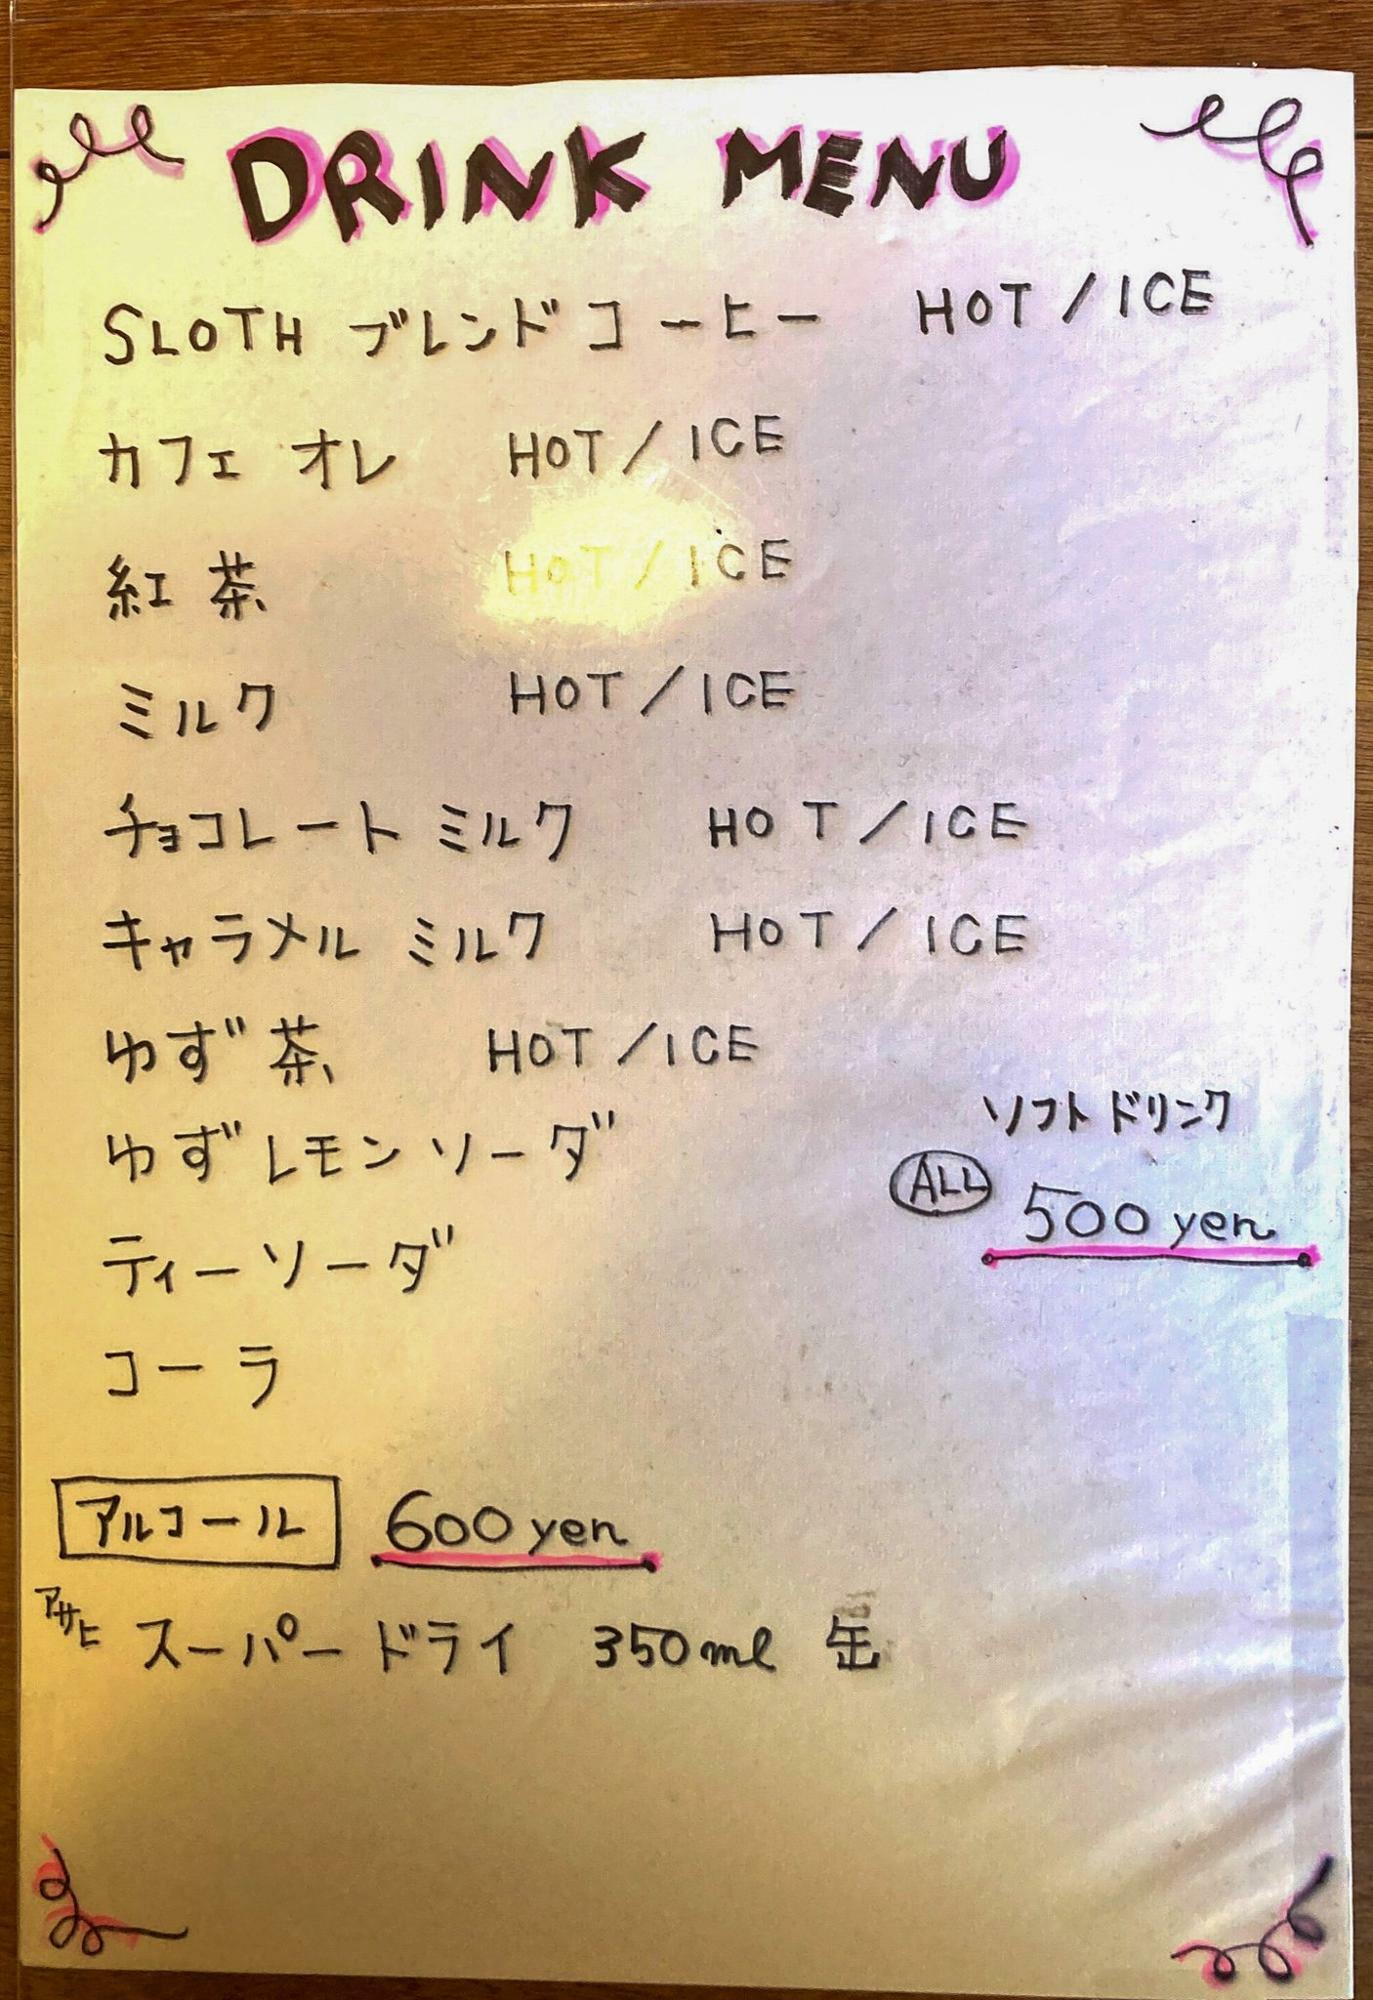 DRINK MENU
SLOTH ブレンドコーヒー HOT / ICE
カフェオレ HOT / ICE
紅茶 HOT / ICE
ミルク HOT / ICE
チョコレートミルク HOT / ICE
キャラメルミルク HOT / ICE
ゆず茶 HOT / ICE
ゆずレモンソーダ
ティーソーダ
コーラ
ソフトドリンク
ALL 500 yen
アルコール 600 yen
アサヒ スーパードライ 350ml 缶